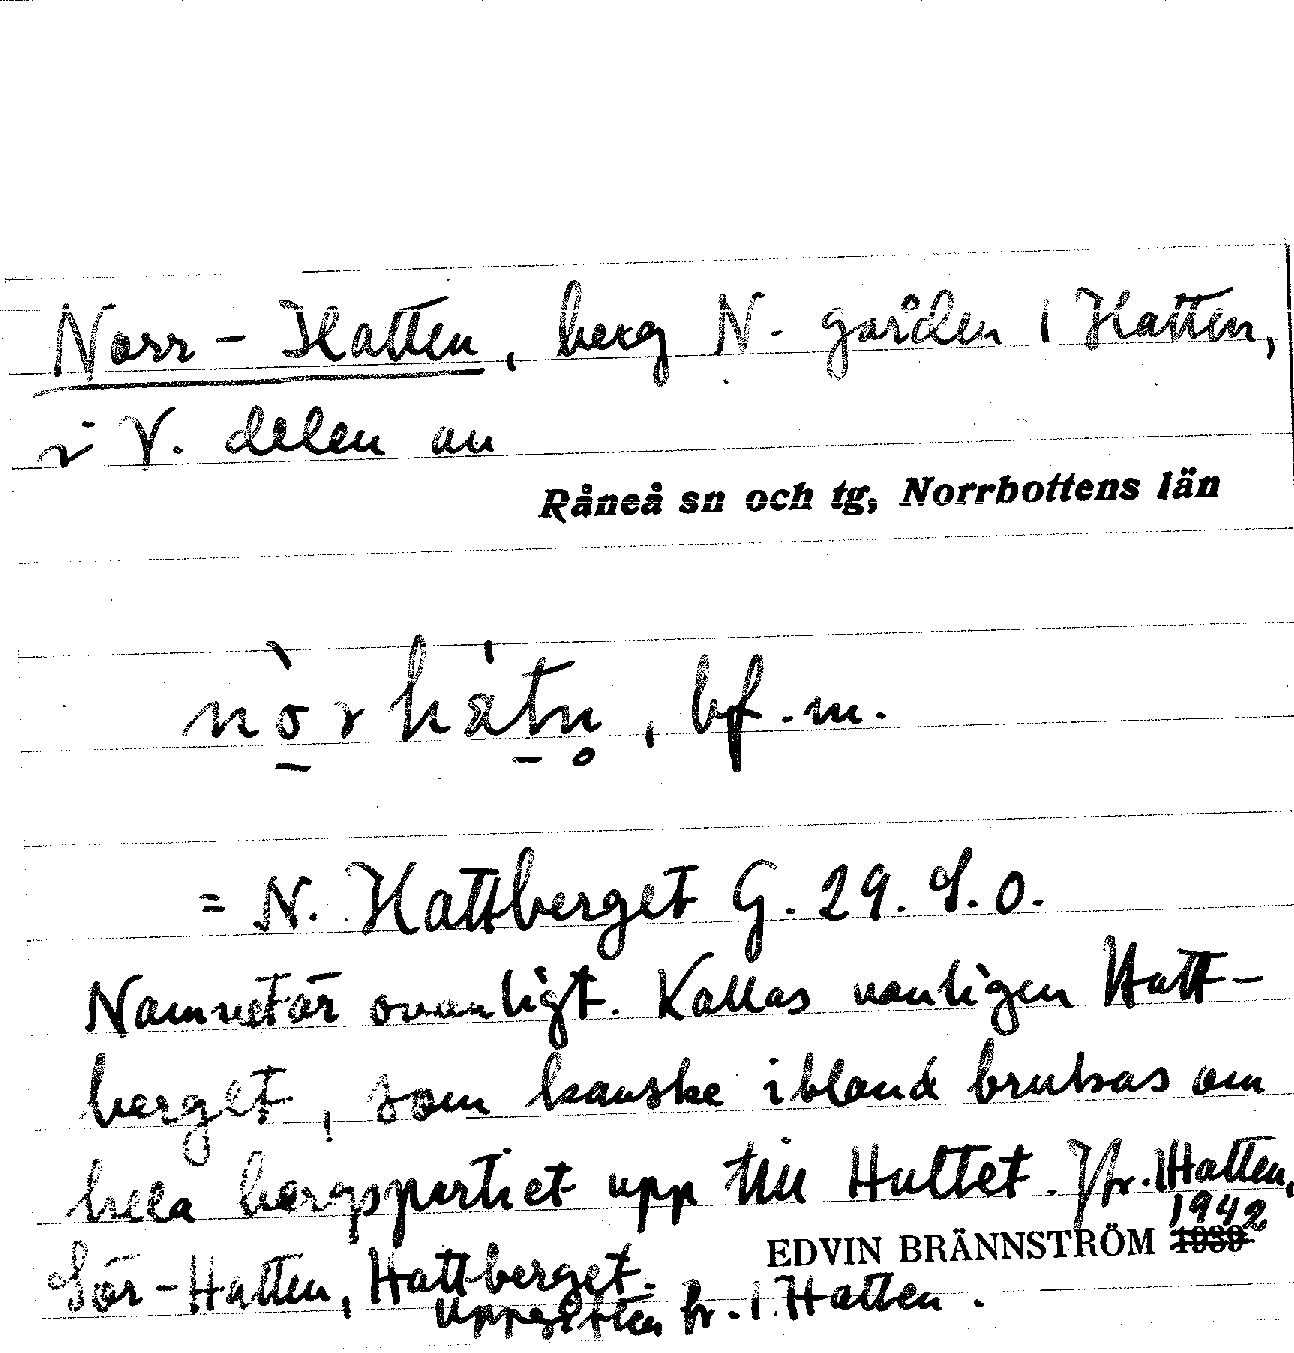 Norr-Hatten, berg N. gården 1 Hatten,
i V. delen av
Råneå sn och tg, Norrbottens län
nòrhàtn̥, bf. m.
= N. Hattberget G. 29. S. O.
Namnet är ovanligt. Kallas vanligen Hatt-
berget, som kanske ibland brukas om
hela bergspartiet upp till Hultet. Jfr. 1 Hatten,
1942
EDVIN BRÄNNSTRÖM 1939
Sör-Hatten, Hattberget.
Uppgiften fr. 1 Hatten.